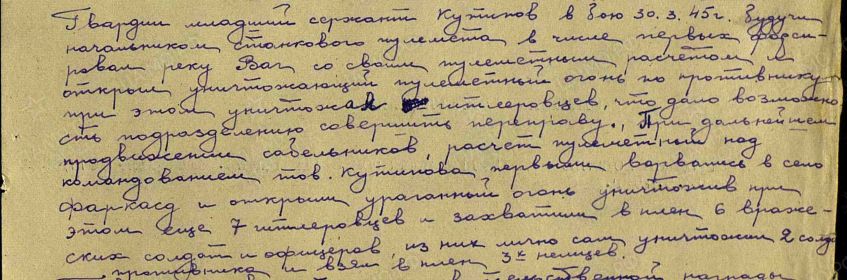 Гвардии младший сержант Кутипов в бою 30.3.45г. будучи
начальником станкового пулемета в числе первых форси-
ровал реку Ваг со своим пулеметным расчетом и
открыл уничтожающий пулеметный огонь по противнику
при этом уничтожал гитлеровцев, что дало возможно
сть подразделению совершить переправу., При дальнейшем
продвижении сабельников, расчет пулеметный под
командованием тов. Кутипова первыми ворвались в село
Фаркасд и открыли ураганный огонь уничтожив при
этом еще 7 гитлеровцев и захватили в плен 6 враже-
ских солдат и офицеров, из них лично сам уничтожил 2 солда
противника и взял в плен 3х немцев.
награды